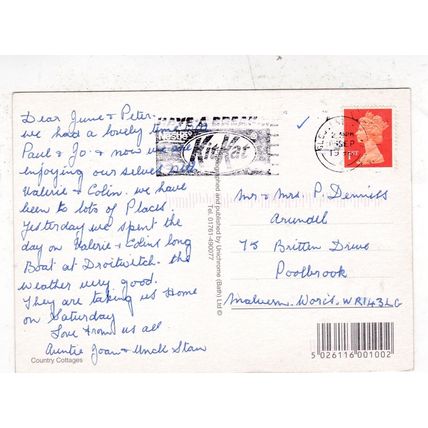 Dear June & Peter.
we had a lovely time
Paul & Jo. & now we are
enjoying our selves
Valerie & Colin. we have
been to lots of Places.
Yesterday we spent the
day on Valerie & Colins long
Boat at Droitwitch. the
weather very good.
They are taking us Home
on Saturday
Love from us all
Auntie Joan & Uncle Stan
Country Cottages
HAVE A BREAK
KitKat
SEP
and published by Unichrome (Bath) Ltd ©
Tel. 01761-490077
Mr & Mrs P. Denniss
Arundel
75 Britten Drive
Poolbrook
Malvern. Worcs. WR143LG
5 026116 001002